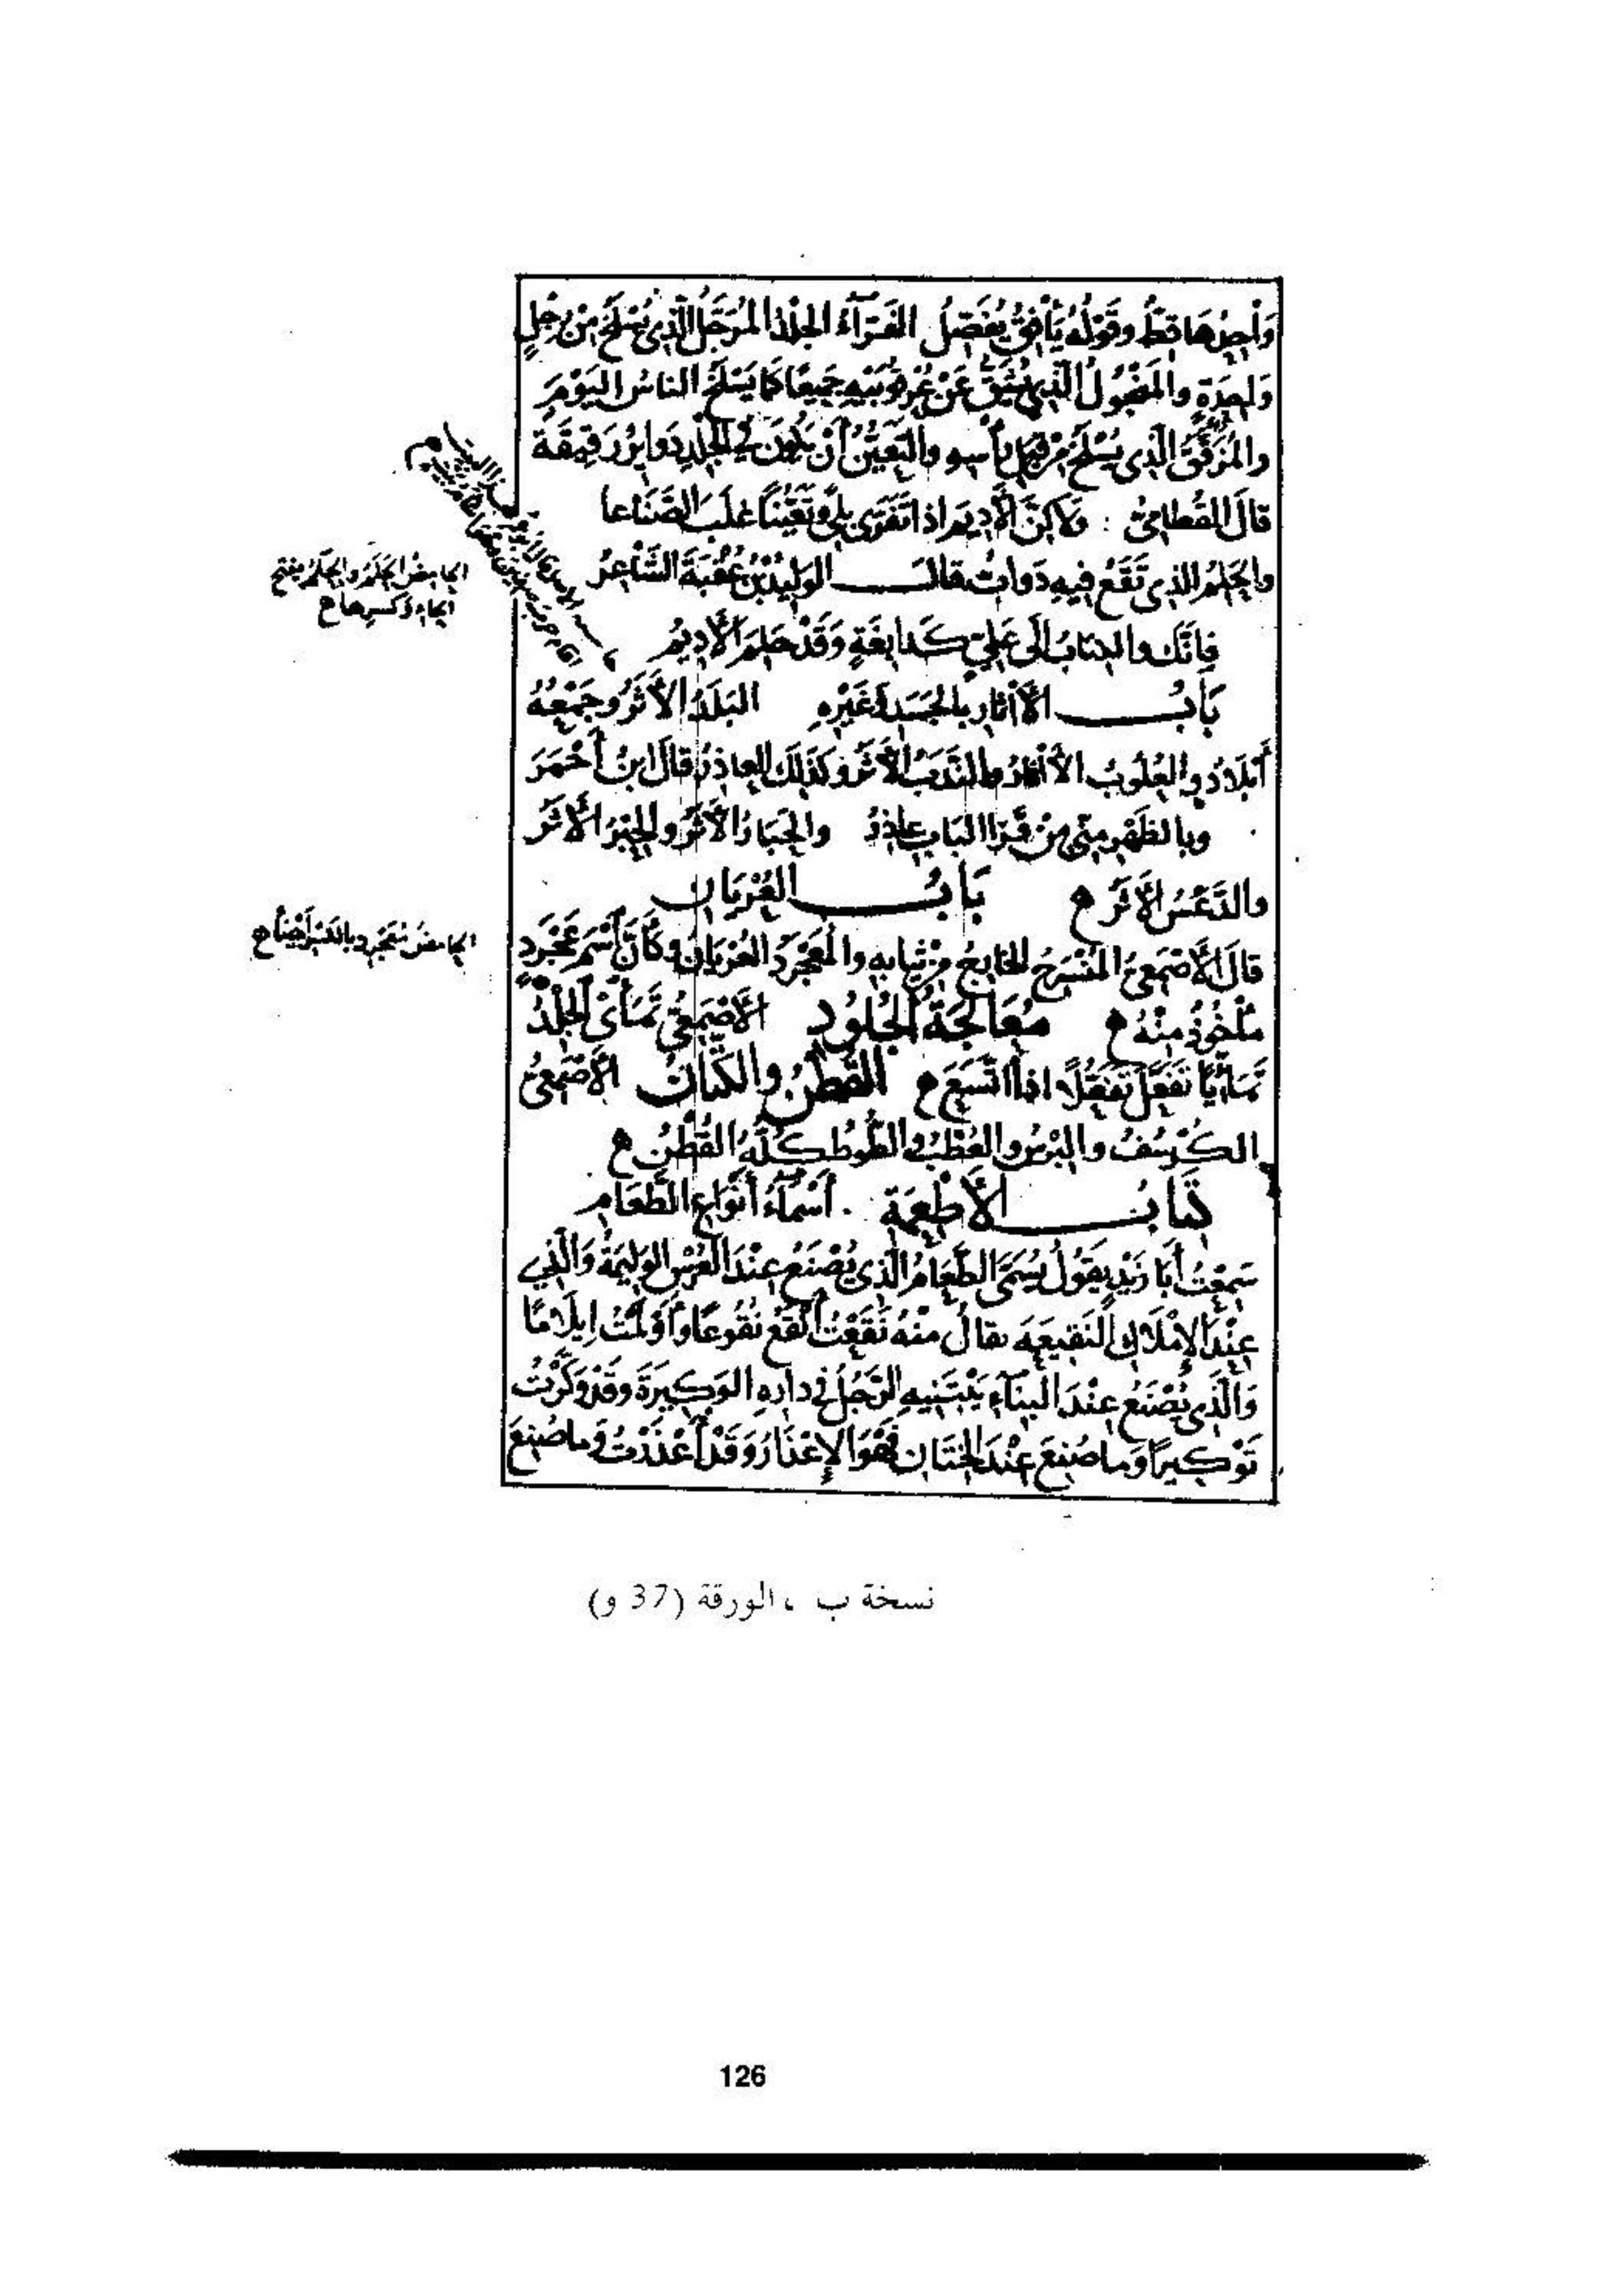 وَاحِدُهَا قِطٌّ وقَوْلُهُ يَأْفِقُ يُفْضِلُ الفَرَّآءُ الجِلْدُ المُرَجَّلُ الَّذِي يُسْلَخُ مِنْ رِجْلٍ
وَاحِدَةٍ والمَنْجُولُ الَّذِي يُشَقُّ عَنْ عُرْقُوبَيْهِ جَمِيعًا كَمَا يَسْلَخُ الناسُ اليَوْمَ
والمُزَقَّقُ الَّذِي يُسْلَخُ مِنْ قِبَلِ رَأْسِهِ والتَّعَيُّنُ أَنْ يَكُونَ فِي الجِلْدِ دَوايِرُ رَقِيقَةٌ
قالَ القُطامِيُّ : ولٰكِنَّ الأَدِيمَ إذا تَفَرَّى بِلًى وتَعَيُّنًا غَلَبَ الصَّنَاعا
والحَلِمُ الذي تَقَعُ فيهِ دَوابُّ قالَ الوَلِيدُ بْنُ عُقْبَةَ الشَّاعِرُ
فإنَّكَ والكِتابَ إلَى عَلِيٍّ كَدابِغَةٍ وَقَدْ حَلِمَ الأَدِيمُ
الحامض الحَلَمُ والحَلِمُ بفتح
الحاء وكسرها ح
بَابُ الآثارِ بالجَسَدِ وَغَيْرِهِ البَلَدُ الأَثَرُ وجَمْعُهُ
أَبْلَادٌ والعُلُوبُ الآثارُ والنَّدَبُ الأَثَرُ وكَذٰلِكَ العاذِرُ قالَ ابنُ أَحْمَرَ
وبالظَّهْرِ مِنِّي مِنْ قَرَا البَابِ عاذِرُ والحَبَارُ الأَثَرُ والحِبْرُ الأَثَرُ
والدَّعْسُ الأَثَرُ ه بَابُ العُرْيَانِ
قالَ الأَصْمَعِيُّ المُنْسَرِحُ الخَارِجُ مِنْ ثِيابِهِ والمُعَجْرَدُ العُرْيَانُ وكَأَنَّ اسْمَ عَجْرَدٍ
مَأْخُوذٌ مِنْهُ ه مُعَالَجَةُ الجُلُودِ الأَصْمَعِيُّ تَمَأَّى الجِلْدُ
تَمَئِّيًا تَفَعَّلَ تَفَعُّلًا اذا اتَّسَعَ ه القُطْنُ والكَتَّانُ الأَصْمَعِيُّ
الكُرْسُفُ والبُرْسُ والعُطْبُ والطُّوطُ كُلُّهُ القُطْنُ ه
كِتَابُ الأَطْعِمَةِ . أَسْمَآءُ أَنْوَاعِ الطَّعَامِ
سَمِعْتُ أَبَا زَيْدٍ يَقُولُ يُسَمَّى الطَّعَامُ الَّذِي يُصْنَعُ عِنْدَ العُرْسِ الوَلِيمَةَ وَالَّذِي
عِنْدَ الإِمْلَاكِ النَّقِيعَةَ يقالُ مِنْهُ نَقَعْتُ أَنْقَعُ نُقُوعًا وأَوْلَمْتُ إيلَامًا
وَالَّذِي يُصْنَعُ عِنْدَ البِنَآءِ يَبْتَنِيهِ الرَّجُلُ فِي دارِهِ الوَكِيرَةُ وقَدْ وَكَّرْتُ
تَوْكِيرًا وَما صُنِعَ عِنْدَ الخِتَانِ فَهُوَ الإِعْذَارُ وَقَدْ أَعْذَرْتُ وَما صُنِعَ
نسخة ب ، الورقة (37 و)
126